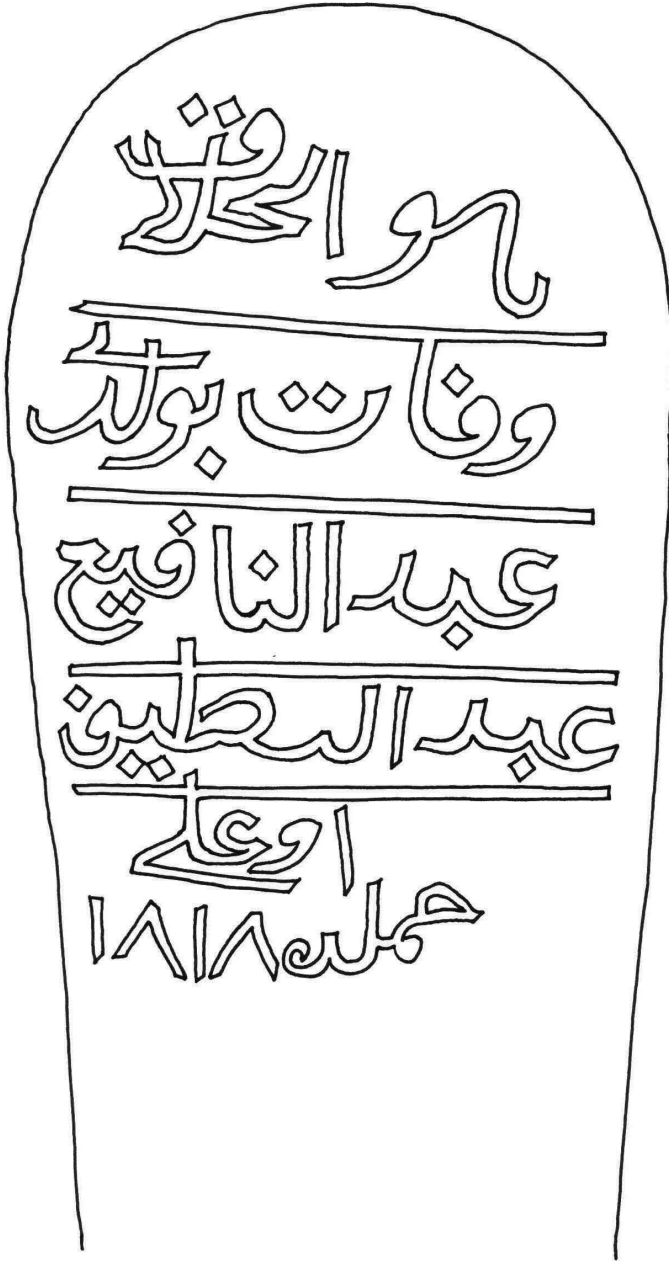 هو
وفات بولدى
عبد النافيع
عبد اللطيف
اوعلى
١٨١٨